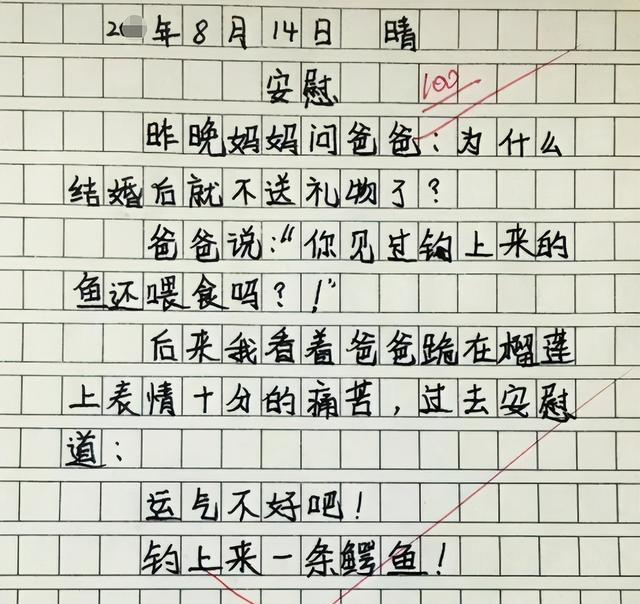 2 年8月14日 晴
安慰 100
昨晚妈妈问爸爸:为什么
结婚后就不送礼物了?
爸爸说:“你见过钩上来的
鱼还喂食吗?!”
后来我看着爸爸跪在榴莲
上表情十分的痛苦,过去安慰
道:
运气不好吧!
钓上来一条鳄鱼!